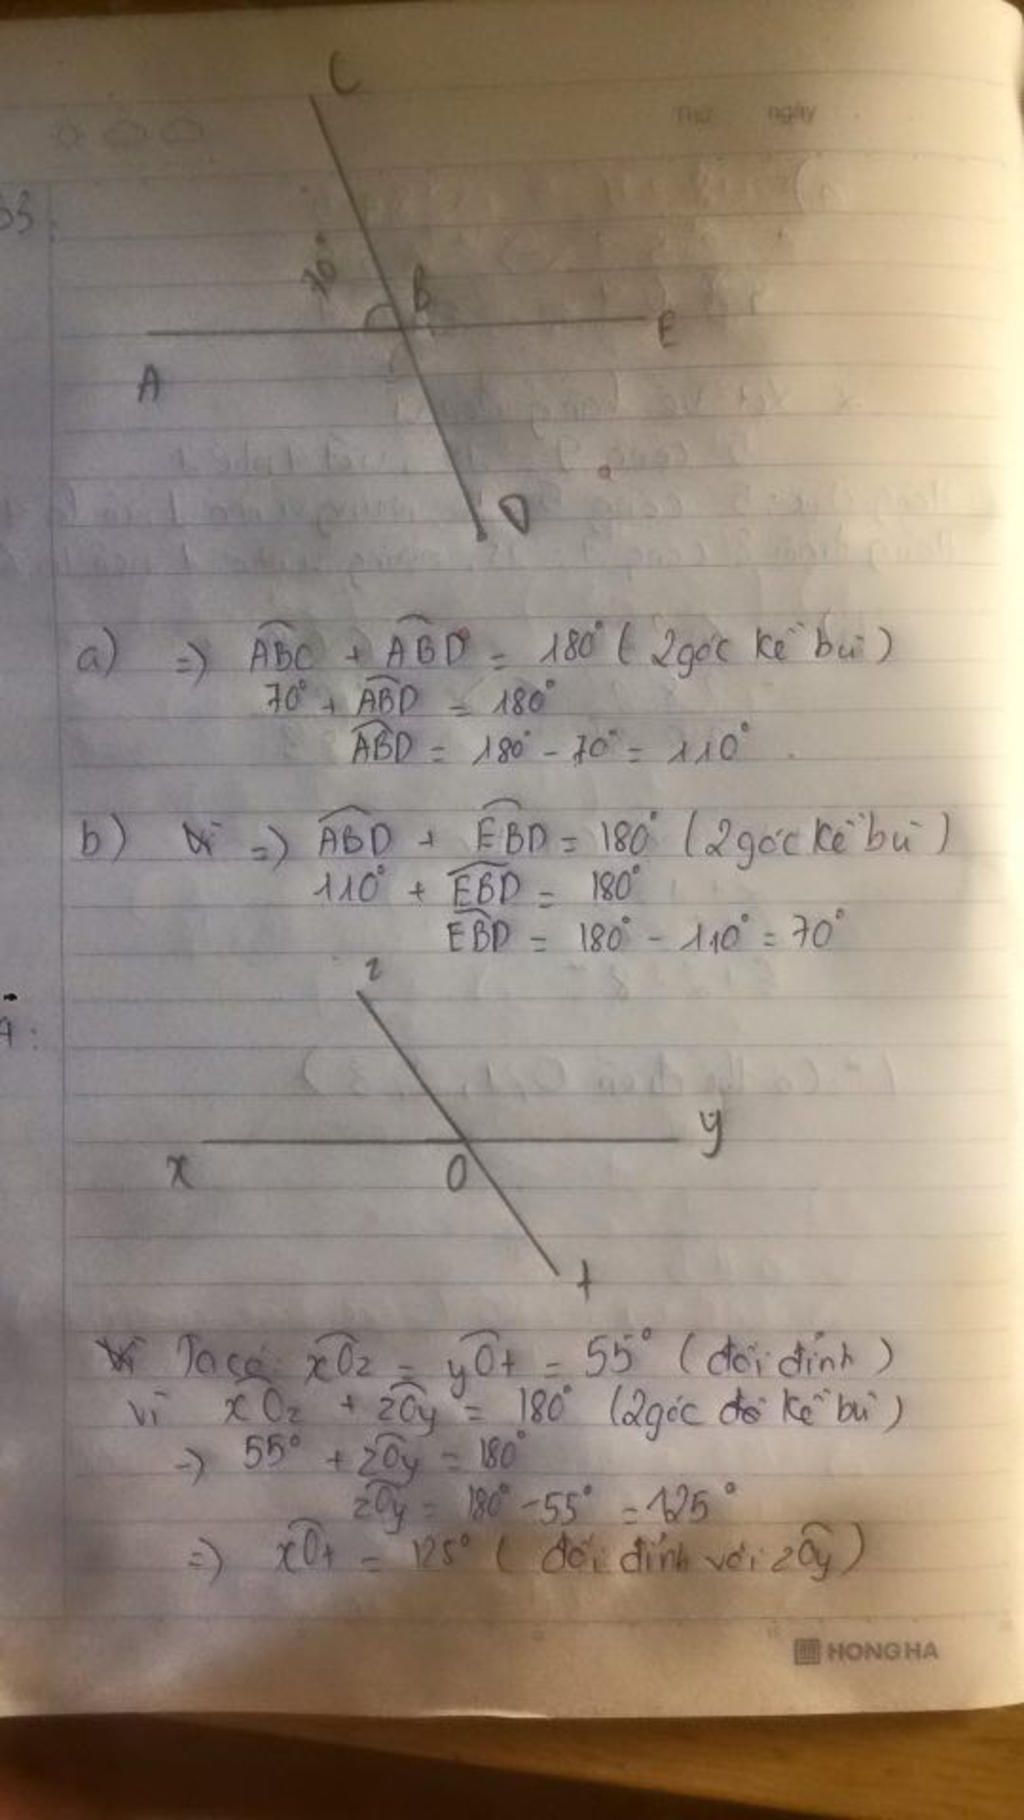 C
Thứ ngày
70°
B
E
A
D
a) => ABC + ABD = 180° (2 góc kề bù)
70° + ABD = 180°
ABD = 180° - 70° = 110°
b) => ABD + EBD = 180° (2 góc kề bù)
110° + EBD = 180°
EBD = 180° - 110° = 70°
z
y
x
O
t
Ta có: xOz = yOt = 55° (đối đỉnh)
Vì xOz + zOy = 180° (2 góc kề bù)
=> 55° + zOy = 180°
zOy = 180° - 55° = 125°
=> xOt = 125° (đối đỉnh với zOy)
HONG HA